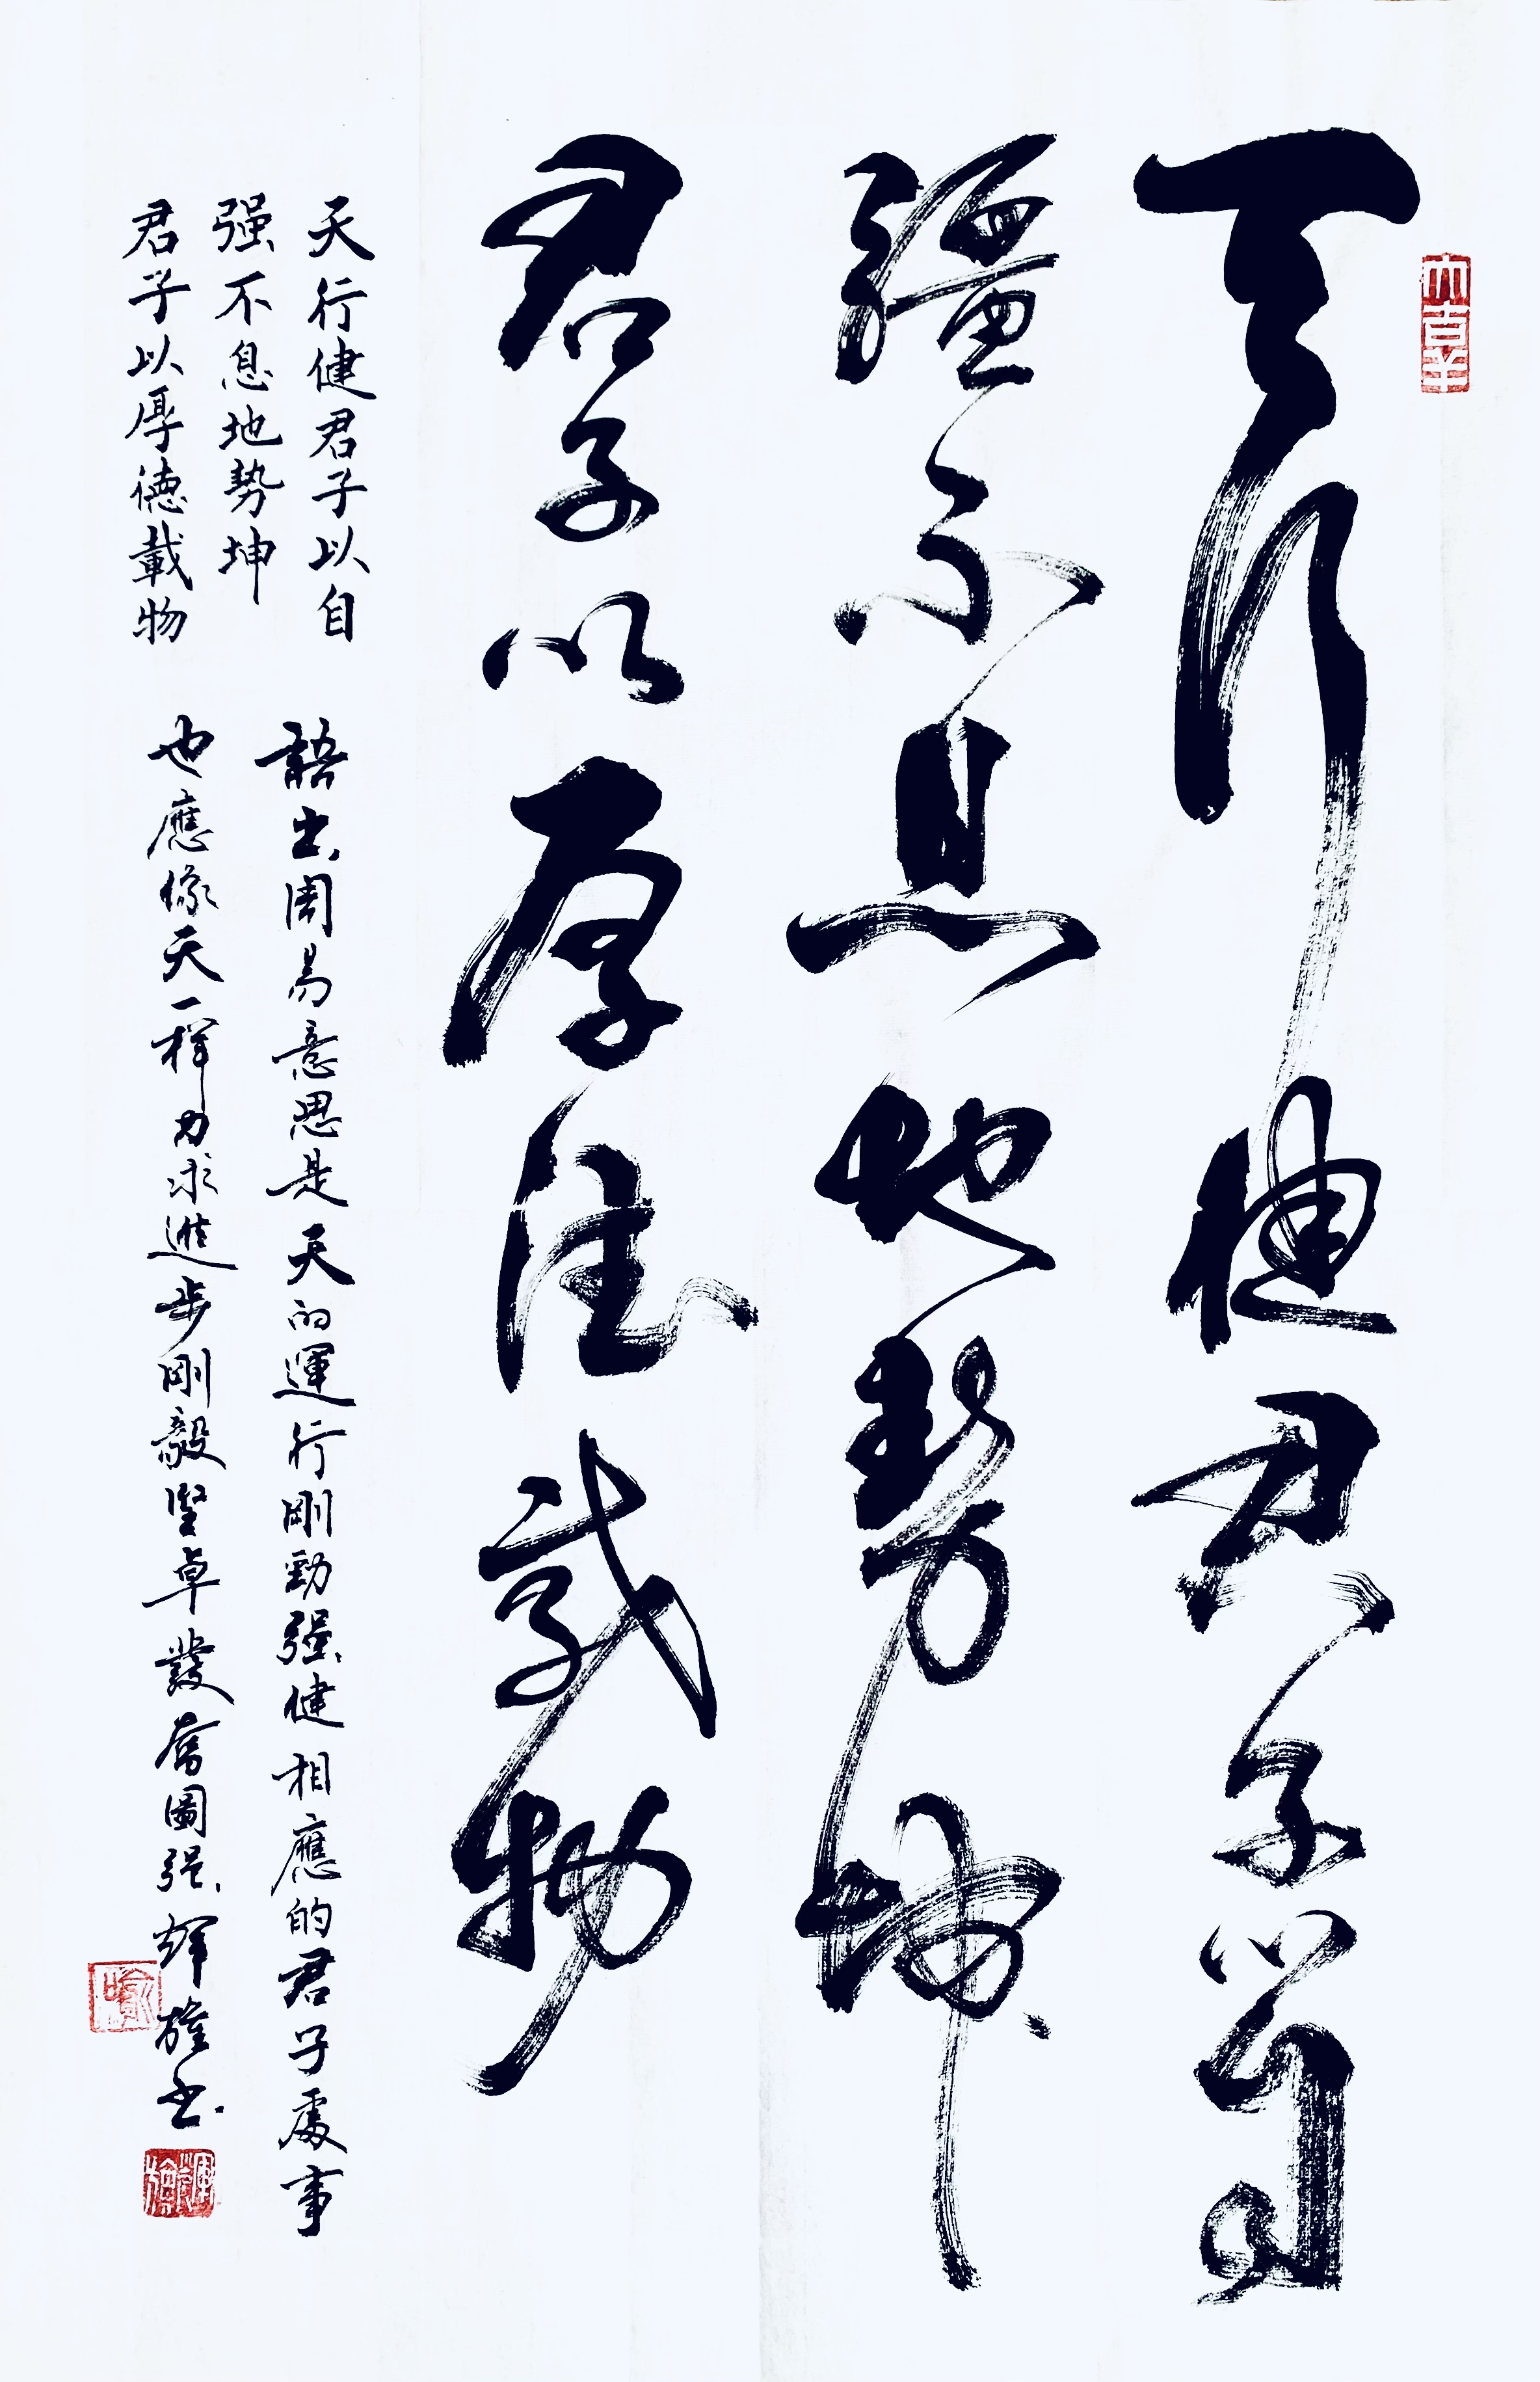 天行健君子以自
彊不息地勢坤
君子以厚德載物
天行健君子以自
强不息地勢坤
君子以厚德載物
語出周易意思是天的運行剛勁强健相應的君子處事
也應像天一樣力求進步剛毅堅卓發奮圖强 輝 書
大吉羊
喻